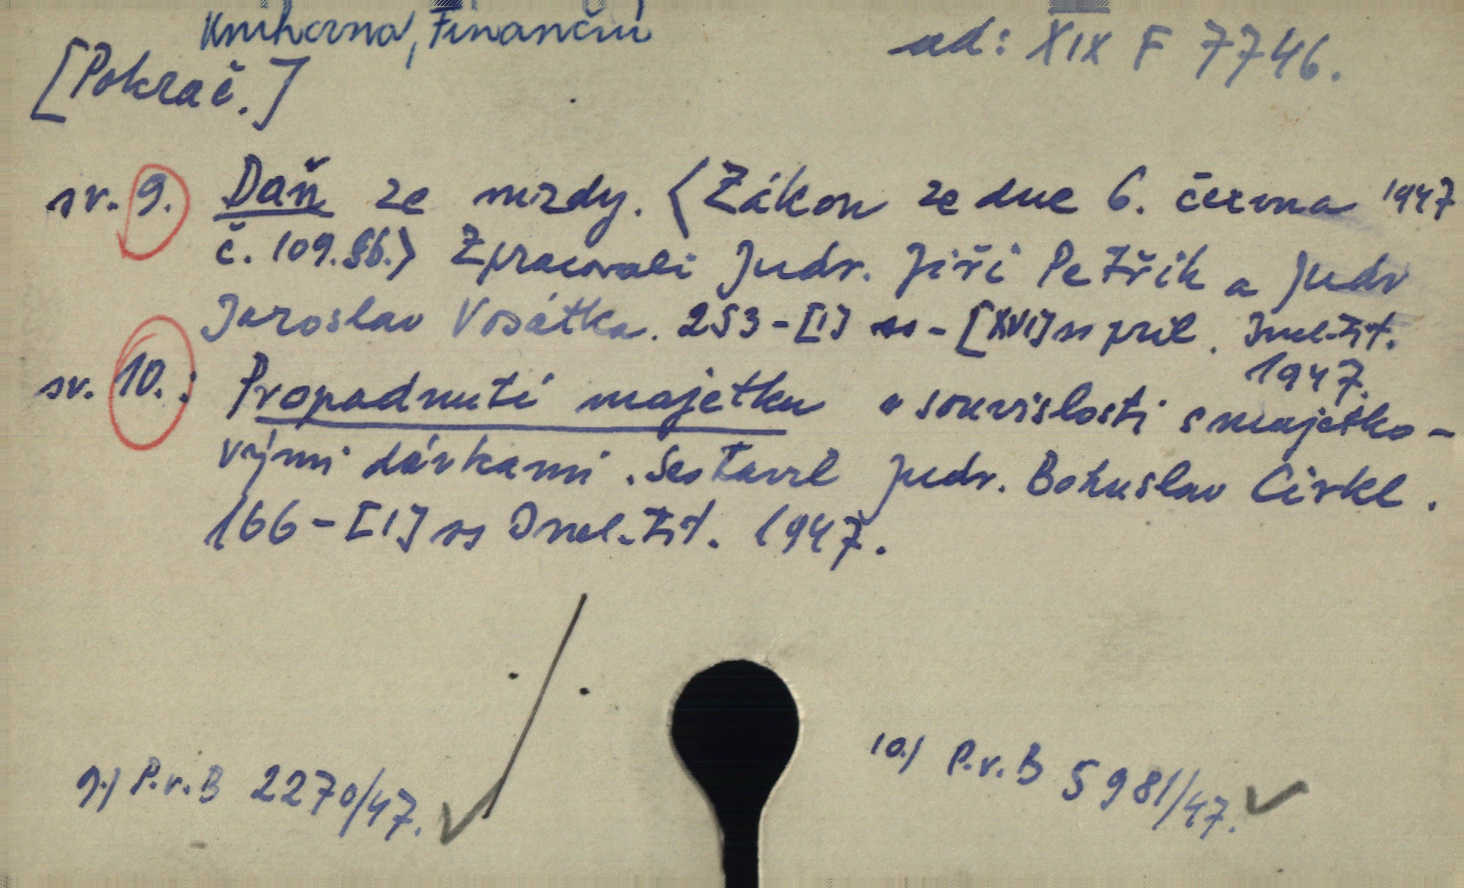 Knihovna, Finanční
ad: XIX F 7746.
[Pokrač.]
sv. 9. Daň ze mzdy. <Zákon ze dne 6. června 1947
č. 109.Sb.> Zpracovali Judr. Jiří Petřík a Judr
Jaroslav Vosátka. 253-[I] ss - [XVI] ss příl. Incl.tit.
1947.
sv. 10.: Propadnutí majetku v souvislosti s majetko-
vými dávkami. Sestavil Judr. Bohuslav Cirkl.
166-[I] ss Incl.tit. 1947.
9.) P.v.B 2270/47.
10.) P.v.B 5981/47.